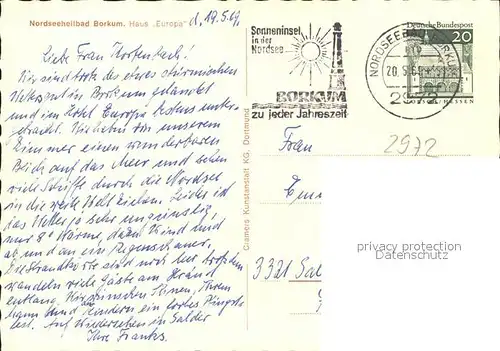 Nordseeheilbad Borkum. Haus „Europa" d. 19.5.69
Liebe Frau
Wir sind trotz des etwas stürmischen
Wetters gut in Borkum gelandet
und im Hotel Europa bestens unter-
gebracht. Wir haben von unserem
Zimmer einen wunderbaren
Blick auf das Meer und sehen
viele Schiffe durch die Nordsee
in die weite Welt ziehen. Leider ist
das Wetter so sehr ungünstig,
nur 8° Wärme, dazu Wind und
ab und an ein Regenschauer,
die Strandkörbe sind noch leer trotzdem
wandeln viele Gäste am Strand
entlang. Wir wünschen Ihnen, Ihrem
Mann und Kindern ein frohes Pfingst-
fest. Auf Wiedersehen in Salder
Ihre Franks.
Cramers Kunstanstalt KG, Dortmund
Sonneninsel
in der
Nordsee
BORKUM
zu jeder Jahreszeit
NORDSEEBAD BORKUM
20.5.69
Deutsche Bundespost
20
LORSCH/HESSEN
2972
Frau
3321 Sal
privacy protection
Datenschutz